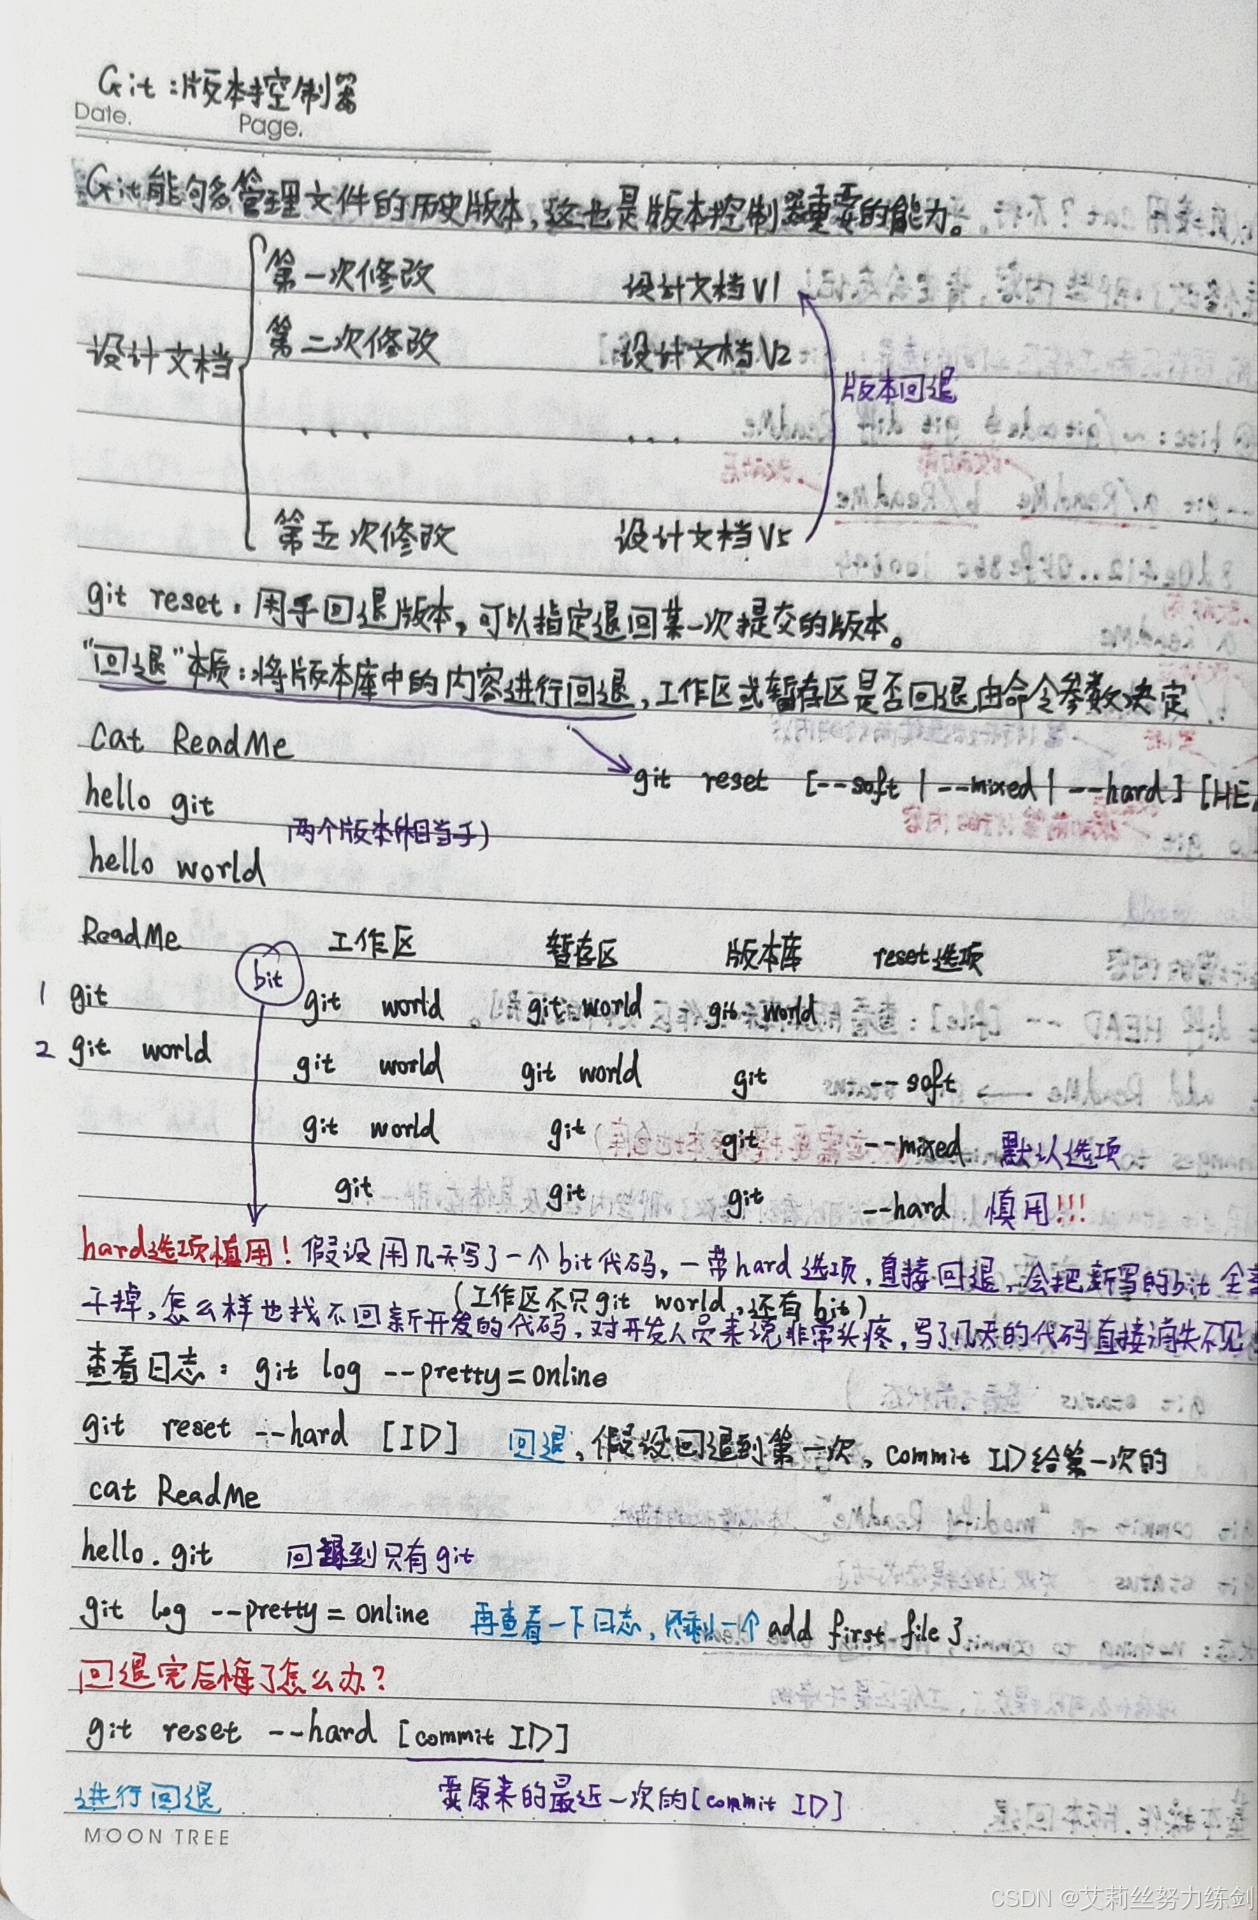 Git:版本控制器
Date. Page.
Git能够多管理文件的历史版本,这也是版本控制器重要的能力。
第一次修改 设计文档V1
设计文档 第二次修改 设计文档V2
版本回退
... ...
第五次修改 设计文档V5
git reset:用于回退版本,可以指定退回某一次提交的版本。
"回退"本质:将版本库中的内容进行回退,工作区或暂存区是否回退由命令参数决定
cat ReadMe
git reset [--soft | --mixed | --hard] [HEA
hello git
两个版本(相当于)
hello world
ReadMe bit 工作区 暂存区 版本库 reset选项
1 git git world git world git world
2 git world git world git world git --soft
git world git git --mixed 默认选项
git git git --hard 慎用!!!
hard选项慎用!假设用几天写了一个bit代码,一带hard选项,直接回退,会把新写的bit全
(工作区不只git world,还有bit)
干掉,怎么样也找不回新开发的代码,对开发人员来说非常头疼,写了几天的代码直接消失不见
查看日志:git log --pretty=online
git reset --hard [ID] 回退,假设回退到第一次,commit ID给第一次的
cat ReadMe
hello.git 回退到只有git
git log --pretty=online 再查看一下日志,只剩一个add first file }
回退完后悔了怎么办?
git reset --hard [commit ID]
进行回退 要原来的最近一次的[commit ID]
MOON TREE
CSDN @艾莉丝努力练剑